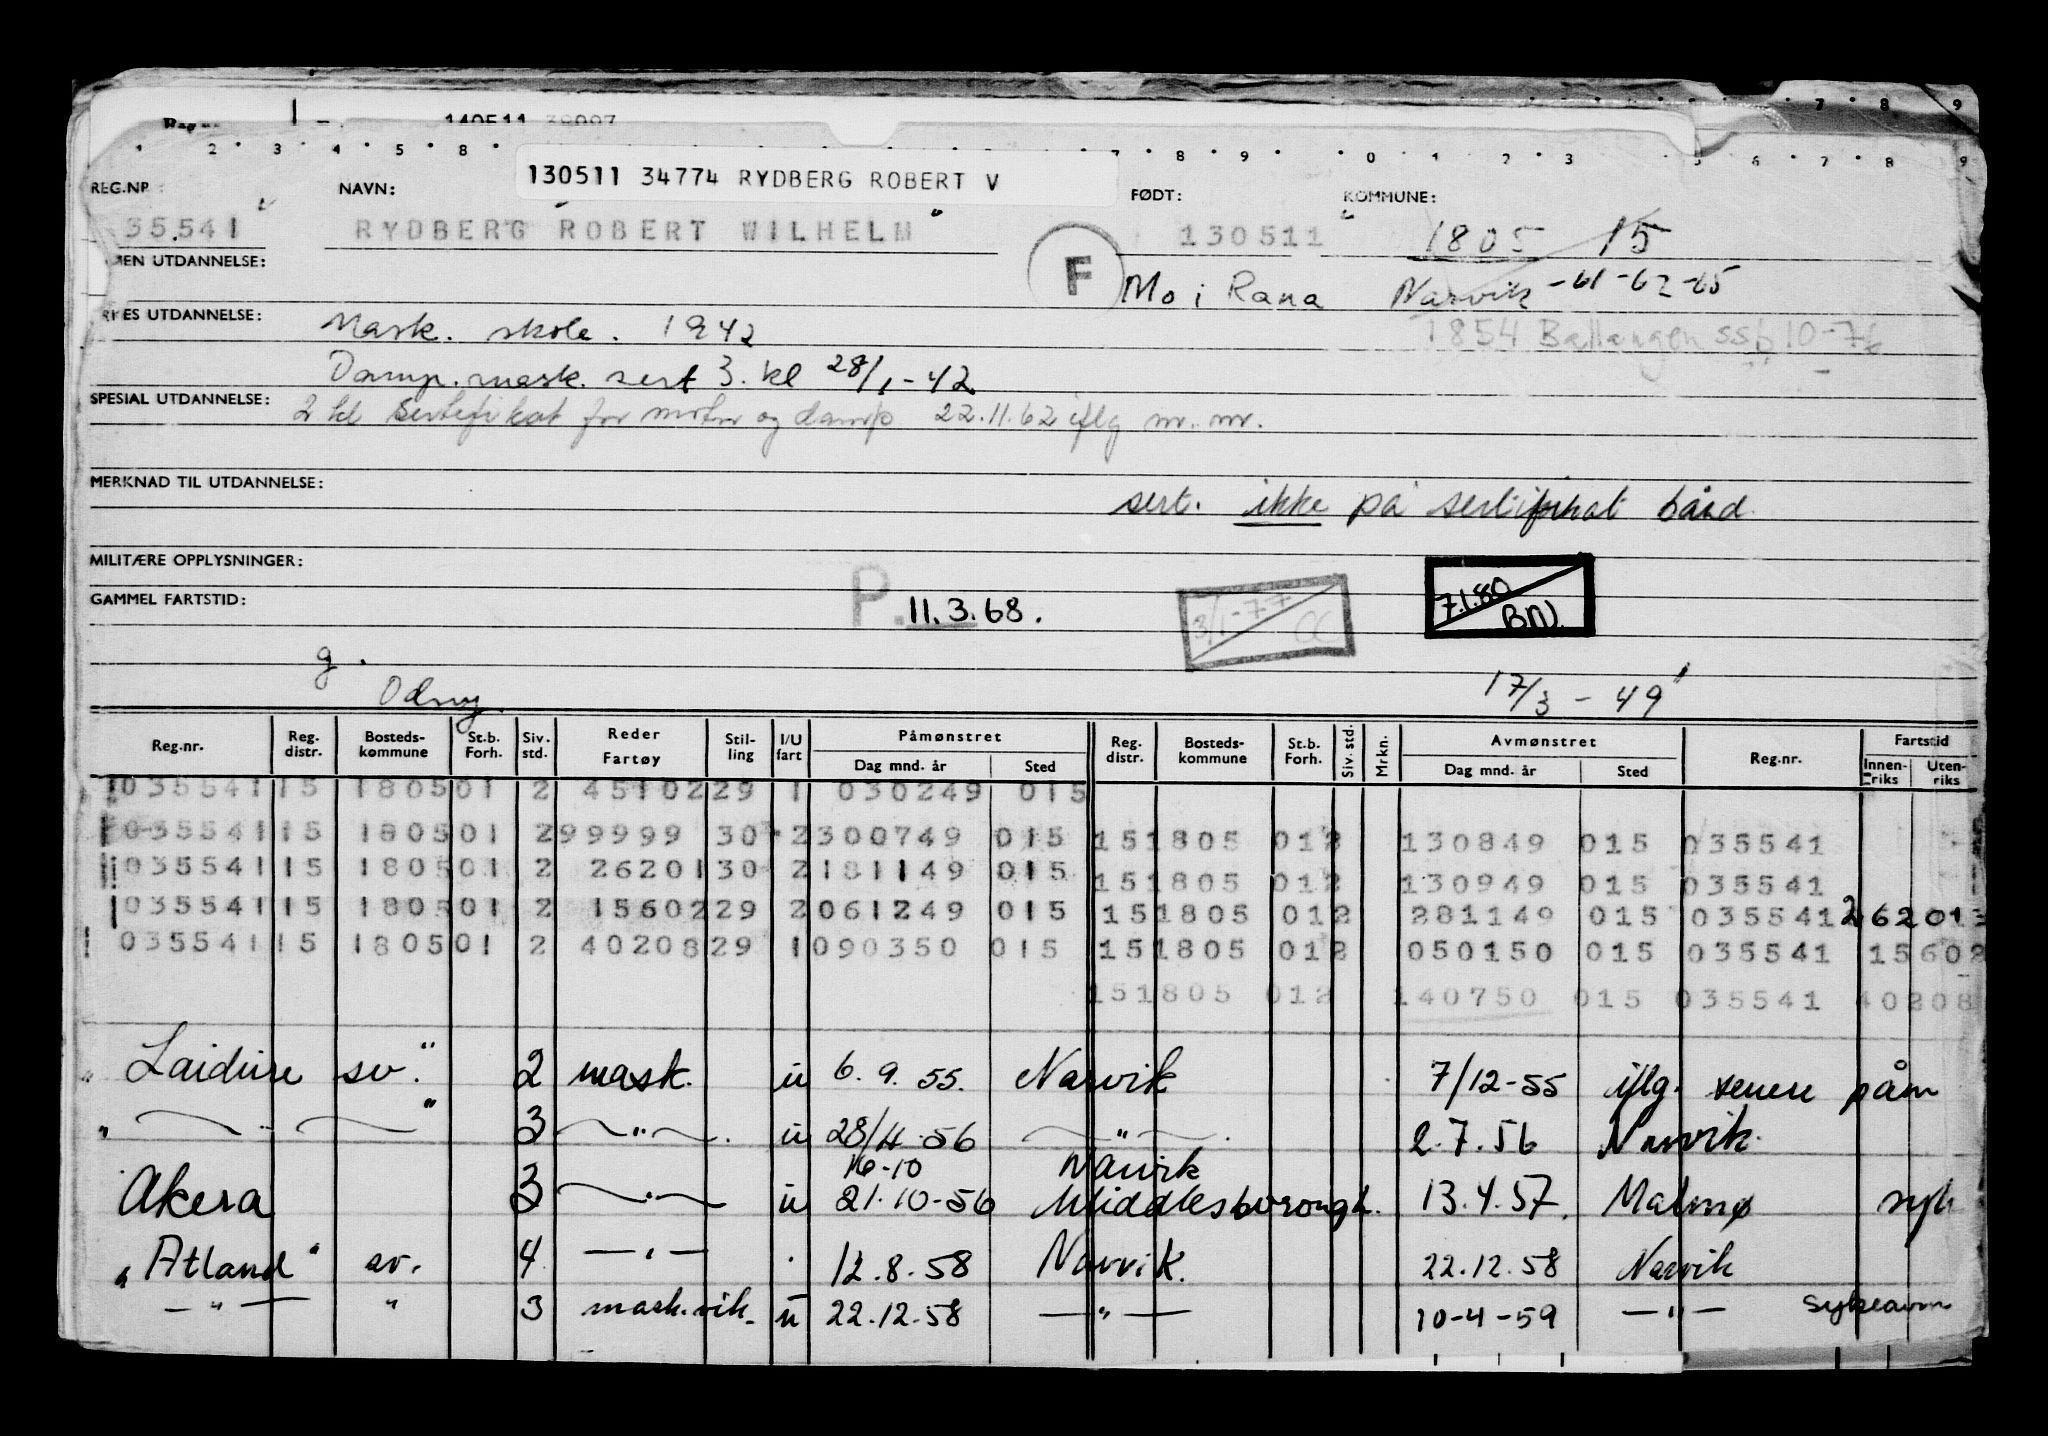 140511 39007
130511 34774 RYDBERG ROBERT V
REG.NR: NAVN: FØDT: KOMMUNE:
35541 RYDBERG ROBERT WILHELM 130511 1805 15
F Mo i Rana Narvik -61-62-65
UTDANNELSE:
1854 Ballangen ssb 10-76
UTDANNELSE: Mask. skole. 1942
Damp.mask. sert 3. kl 28/1-42
SPESIAL UTDANNELSE: 2 kl sertifikat for motor og damp 22.11.62 iflg m. m.
MERKNAD TIL UTDANNELSE:
sert. ikke på sertifikat bånd.
MILITÆRE OPPLYSNINGER:
GAMMEL FARTSTID: P. 11.3.68. 3/1-77 CC 7.1.80 BN.
g.
Odny. 17/3 - 49
Reg.nr. Reg. distr. Bosteds- kommune St.b. Forh. Siv. std. Reder Fartøy Stil- ling I/U fart Påmønstret Dag mnd. år Sted Reg. distr. Bosteds- kommune St.b. Forh. Siv. std. Mrkn. Avmønstret Dag mnd. år Sted Reg.nr. Fartstid Innen- riks Uten- riks
035541 15 1805 01 2 45102 29 1 030249 015
035541 15 1805 01 2 99999 30 2 300749 015 15 1805 01 2 130849 015 035541
035541 15 1805 01 2 26201 30 2 181149 015 15 1805 01 2 130949 015 035541
035541 15 1805 01 2 15602 29 2 061249 015 15 1805 01 2 281149 015 035541 26201
035541 15 1805 01 2 40208 29 1 090350 015 15 1805 01 2 050150 015 035541 15602
15 1805 01 2 140750 015 035541 40208
" Laidure sv." 2 mask. u 6.9.55. Narvik 7/12-55 iflg. senere påm
" — " — " 3 — " — . u 28/4-56 — " — . 2.7.56 Narvik.
16-10 Narvik
Akera 3 — " — u 21.10-56 Middlesborough. 13.4.57. Malmø syk
"Atland" sv. 4 — " — 12.8.58 Narvik. 22.12.58 Narvik
— " — " 3 mask.vik. u 22.12.58 — " — 10-4-59 — " — sykeavm